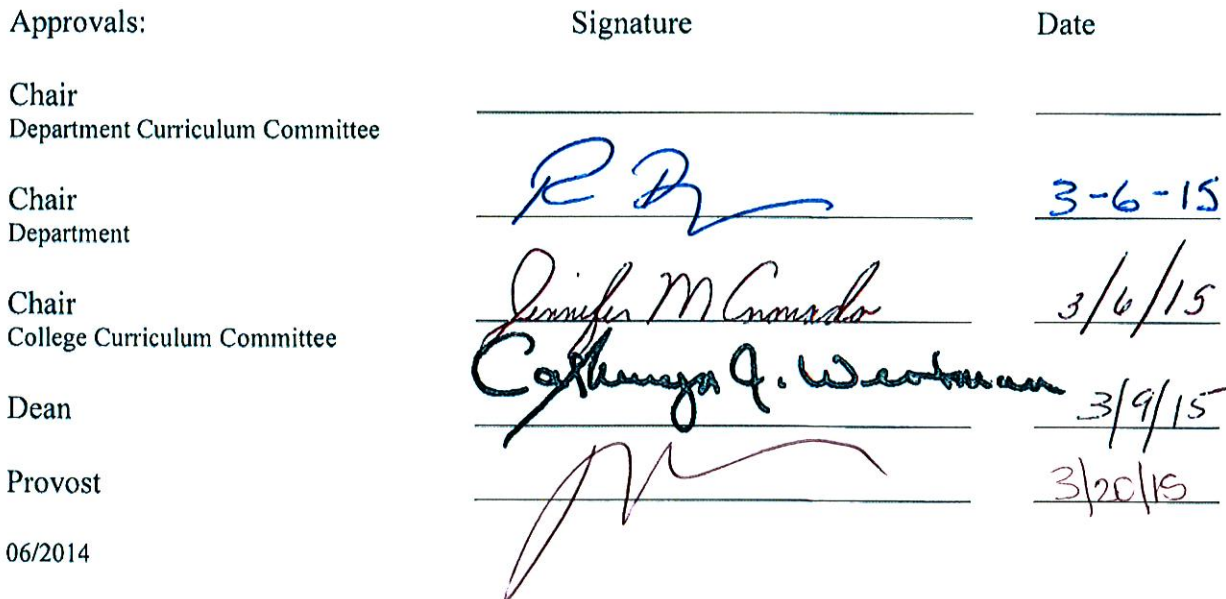 Approvals: Signature Date
Chair
Department Curriculum Committee
Chair
Department
3-6-15
Chair
College Curriculum Committee
Jennifer M 3/6/15
Dean
J. 3/9/15
Provost
3/20/15
06/2014